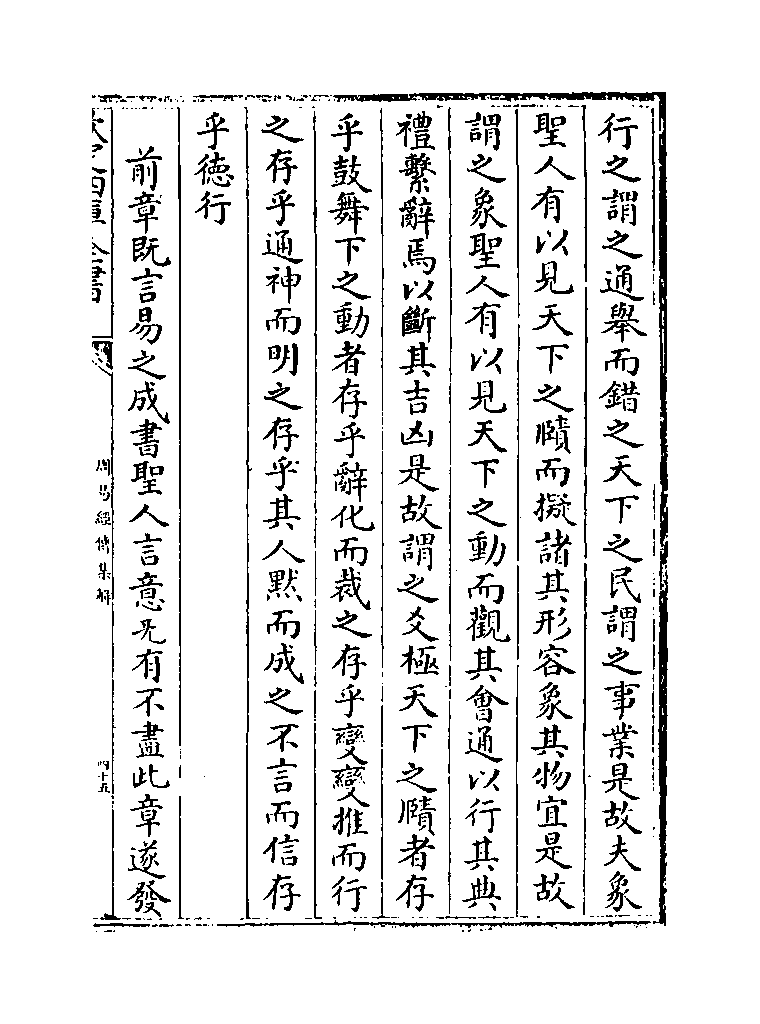 行之謂之通舉而錯之天下之民謂之事業是故夫象
聖人有以見天下之賾而擬諸其形容象其物宜是故
謂之象聖人有以見天下之動而觀其會通以行其典
禮繫辭焉以斷其吉凶是故謂之爻極天下之賾者存
乎鼓舞下之動者存乎辭化而裁之存乎變變推而行
之存乎通神而明之存乎其人黙而成之不言而信存
乎德行
前章既言易之成書聖人言意旡有不盡此章遂發
欽定四庫全書
周易經傳集解
四十五